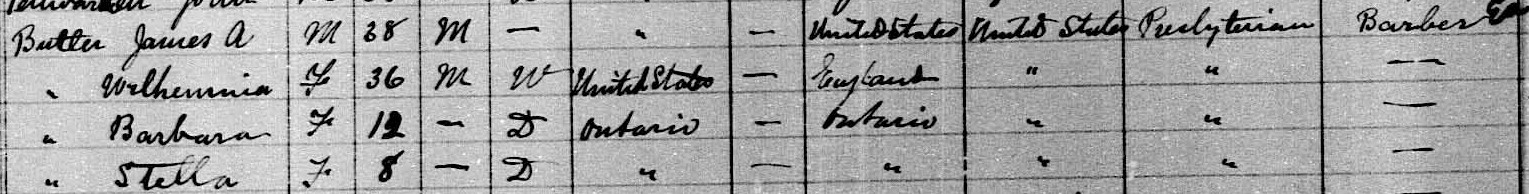 Butler James A M 38 M — " — United States United States Presbyterian Barber
" Wilheminia F 36 M W United States — England " " —
" Barbara F 12 — D Ontario — Ontario " " —
" Stella F 8 — D " — " " " —